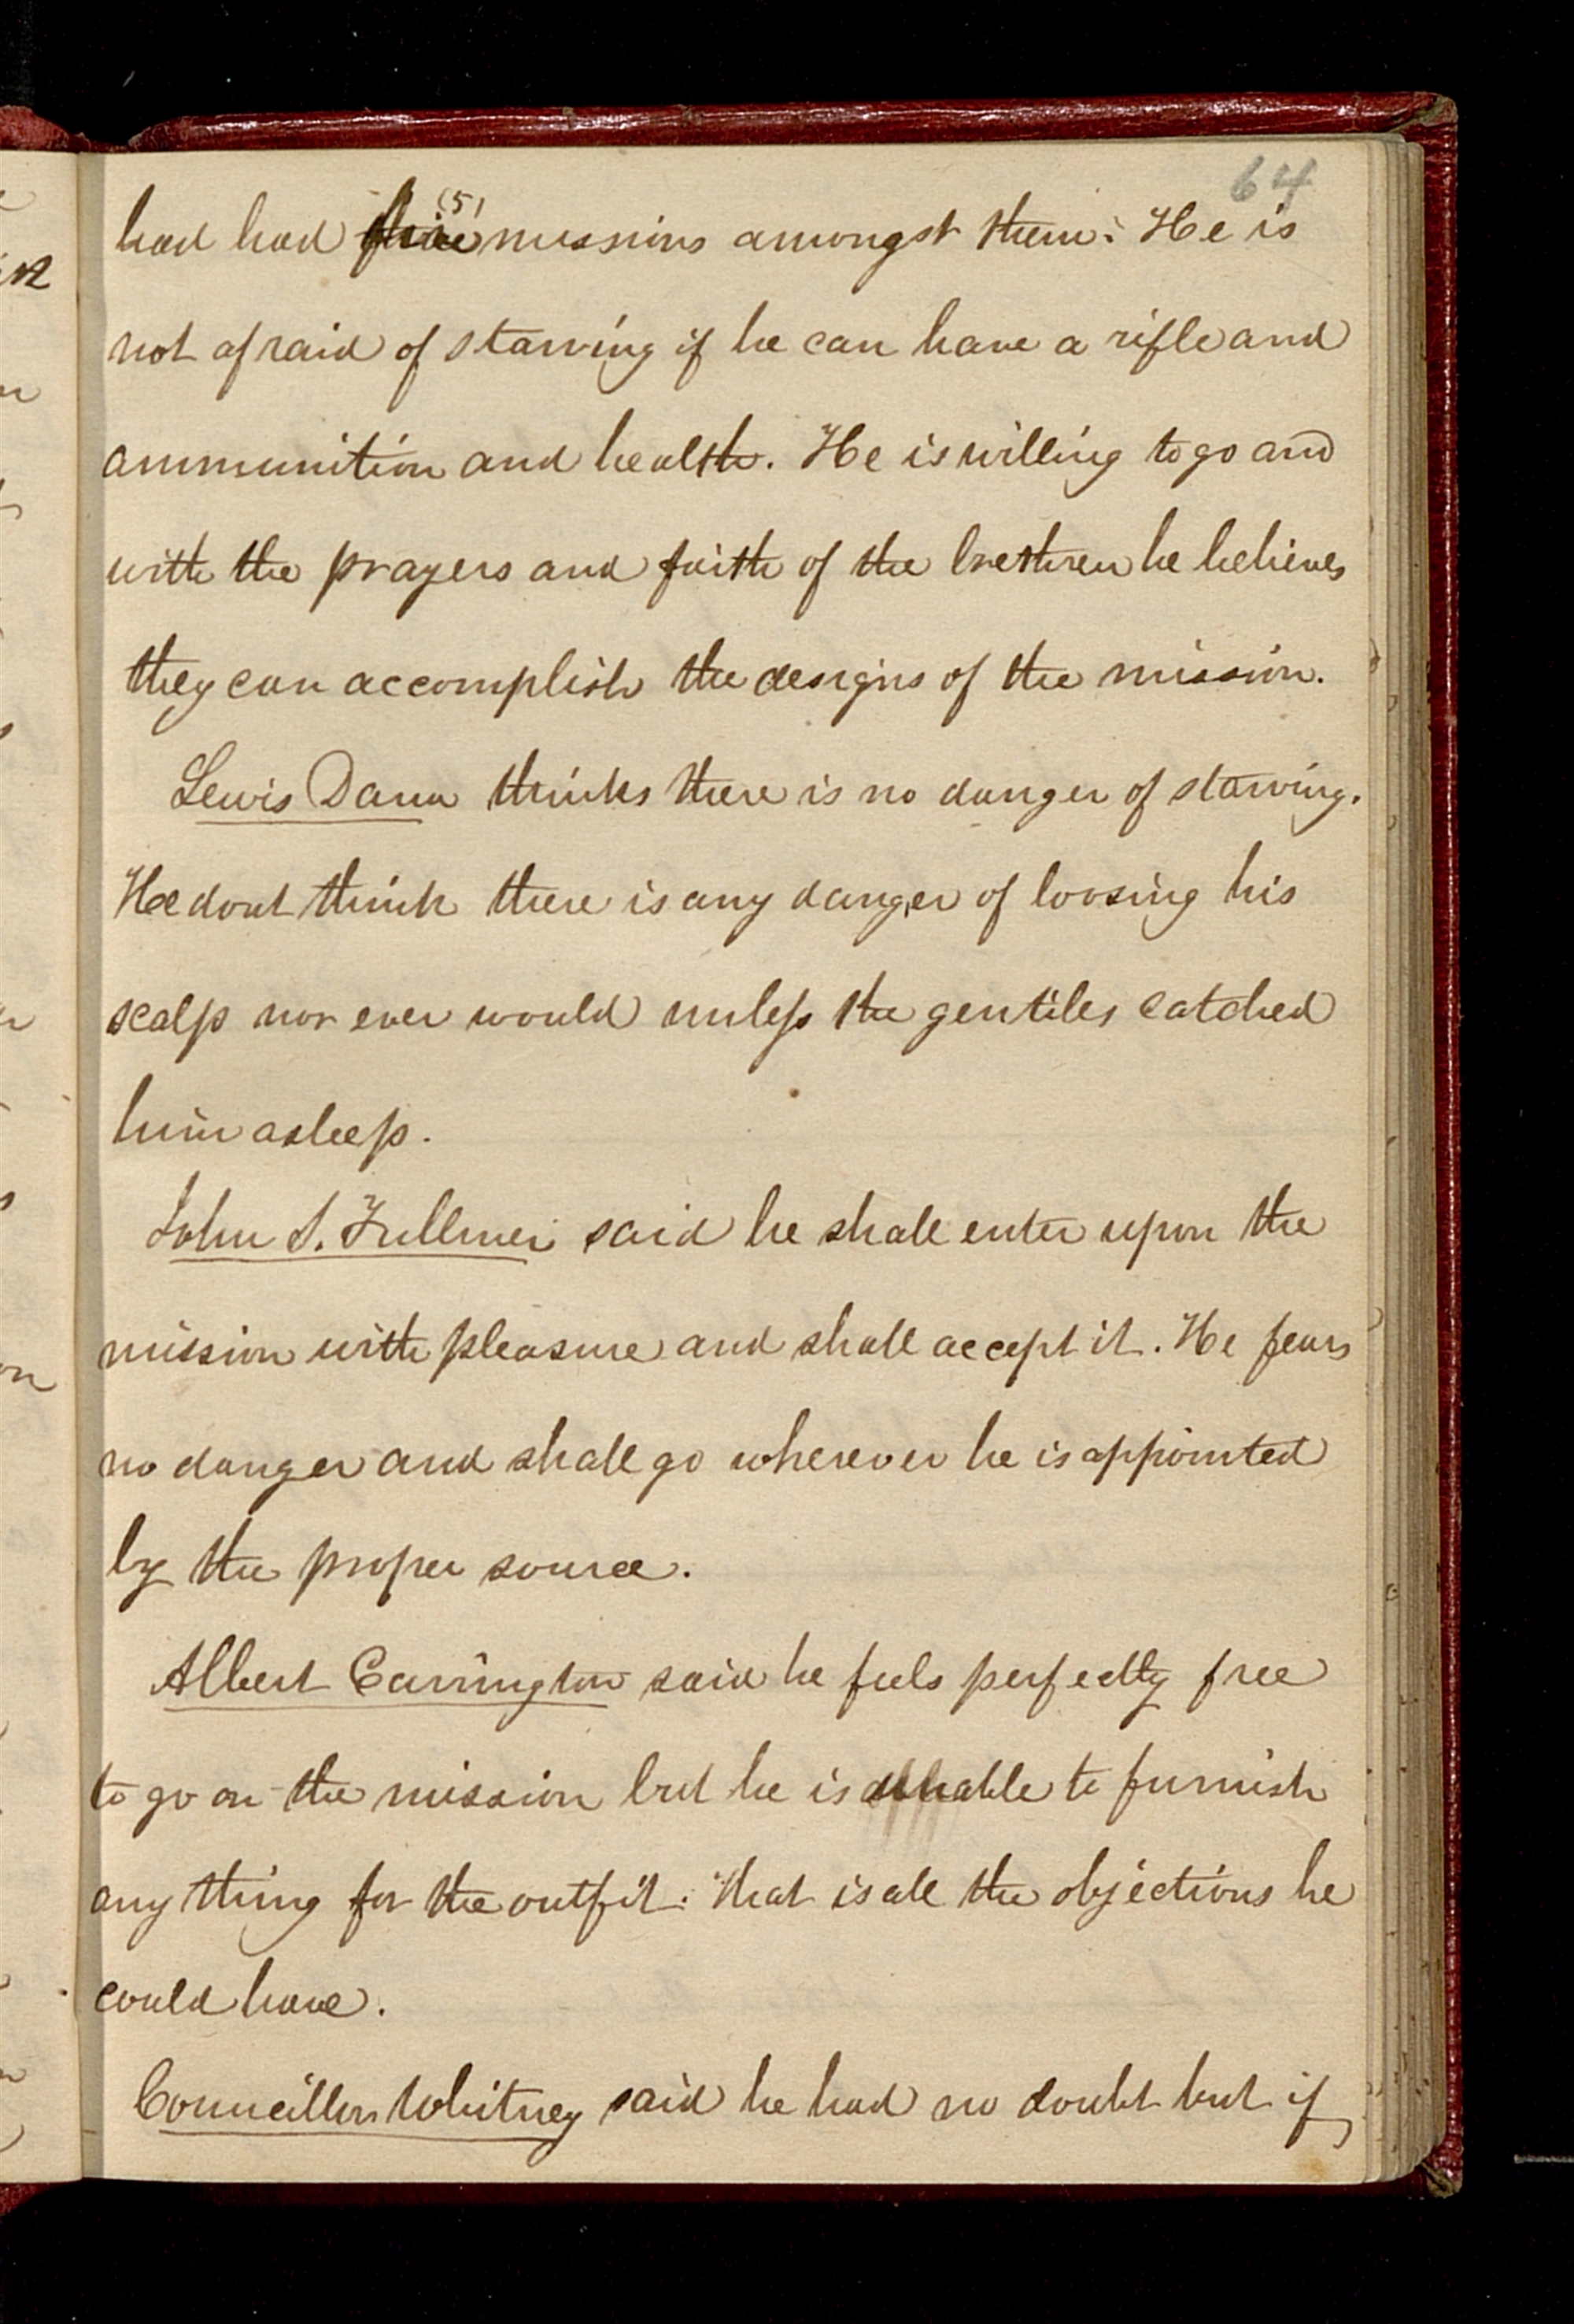 64
had had five (5) missions amongst them. He is
not afraid of starving if he can have a rifle and
ammunition and health. He is willing to go and
with the prayers and faith of the brethren he believes
they can accomplish the designs of the mission.
Lewis Dana thinks there is no danger of starving.
He dont think there is any danger of loosing his
scalp nor ever would unless the gentiles catched
him asleep.
John S. Fullmer said he shall enter upon the
mission with pleasure and shall accept it. He fears
no danger and shall go wherever he is appointed
by the proper source.
Albert Carrington said he feels perfectly free
to go on the mission but he is unable to furnish
any thing for the outfit. That is all the objections he
could have.
Councillor Whitney said he had no doubt but if